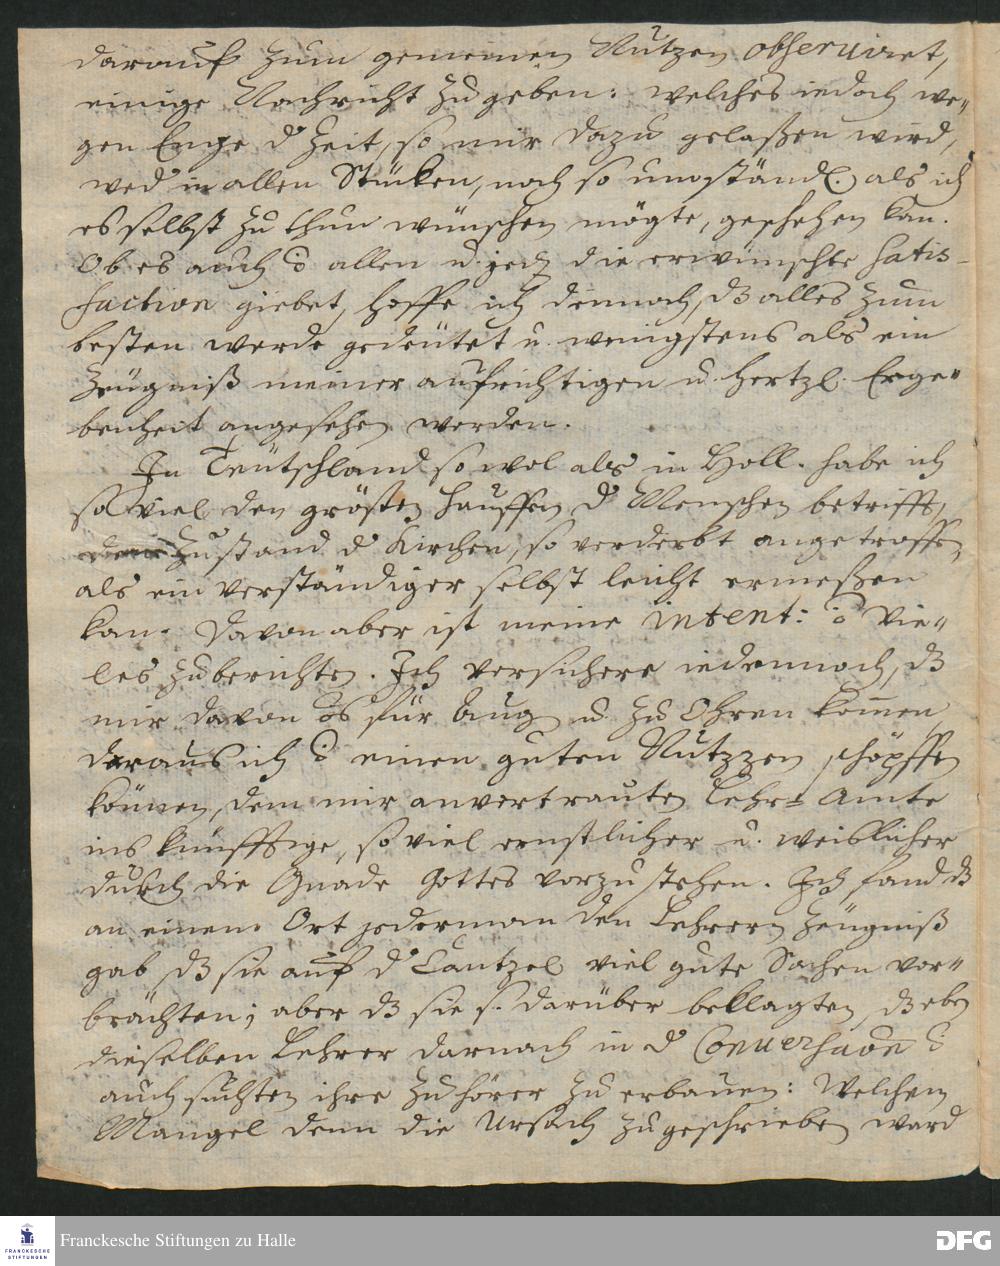 darauf zum gemeinen Nutzen observiret,
einige Nachricht zu geben: welches iedoch we-
gen Enge d Zeit, so mir dazu gelaßen wird,
wed in allen Stücken, noch so umständl. als ich
es selbst zu thun wünschen mögte, geschehen kan.
Ob es auch allen u. die erwünschte satis-
faction giebet, hoffe ich dennoch, dß alles zum
besten werde gedeütet u. wenigstens als ein
Zeügniß meiner aufrichtigen u. hertzl. Erge-
benheit angesehen werden.
In Teütschland so wol als in Holl. habe ich
so viel den grösten Hauffen d Menschen betrifft,
Zustand d Kirchen, so verderbt angetroffen,
als ein verständiger selbst leicht ermeßen
kan. Davon aber ist meine intent: vie-
les zu berichten. Ich versichere iedennoch, dß
mir davon für Aug u. zu Ohren kom̄en,
daraus ich einen guten Nutzzen schöpffen
können, dem mir anvertrauten Lehr-Amte
ins künfftige, so viel ernstlicher u.
durch die Gnade Gottes vorzustehen. Ich fand dß
an einem Ort jederman den Lehrern Zeügniß
gab, dß sie auf d Cantzel viel gute Sachen vor-
brächten; aber dß sie s. darüber beklagten, dß eben
dieselben Lehrer darnach in d
auch suchten ihre Zuhörer zu erbauen: Welchem
Mangel denn die Ursach zugeschrieben ward
Franckesche Stiftungen zu Halle
FRANCKESCHE
STIFTUNGEN
DFG